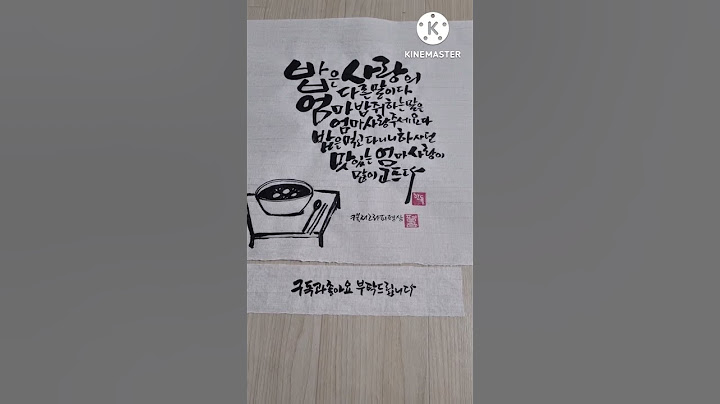 KINEMASTER
밥은 사랑의
다른말이다
엄마밥줘하는말은
엄마사랑주세요다
밥은먹고다니니하시던
맛있는 엄마사랑이
많이고프다
구독과좋아요 부탁드립니다